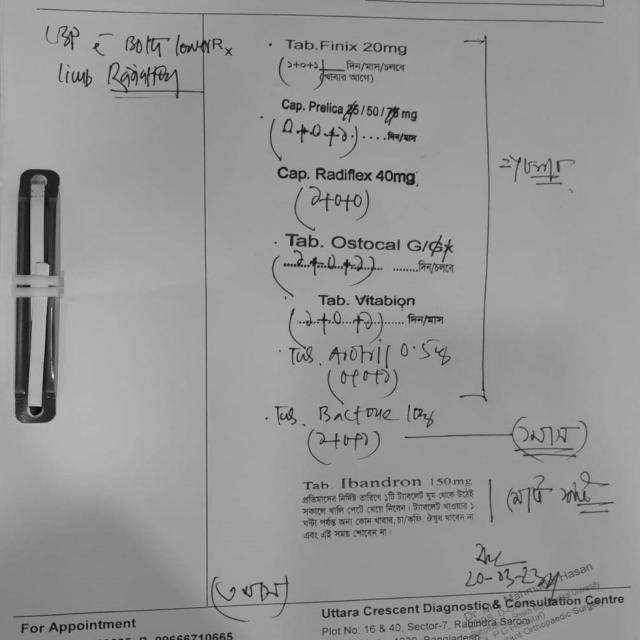 LBP c̄ Both lower
limb Radiating
Rx
Tab.Finix 20mg
(১+০+১) দিন/মাস/চলবে
(খাবার আগে)
Cap. Prelica 25/50/75 mg
(১+০+১).....দিন/মাস
Cap. Radiflex 40mg
(১+০+০)
Tab. Ostocal G/
(১+০+১) ........দিন/চলবে
Tab. Vitabion
(১+০+১)......দিন/মাস
Tab. 0.5mg
(০+০+১)
Tab. 10mg
(১+০+১)
(১মাস)
Tab. Ibandron 150mg
প্রতিমাসের নির্দিষ্ট তারিখে ১টি ট্যাবলেট ঘুম থেকে উঠেই
সকালে খালি পেটে খেয়ে নিবেন। ট্যাবলেট খাওয়ার ১
ঘন্টা পর্যন্ত অন্য কোন খাবার, চা/কফি, ঔষুধ খাবেন না
এবং এই সময় শোবেন না।
20-03-23
Hasan
(৩মাস)
For Appointment
09666710665
Uttara Crescent Diagnostic & Consultation Centre
Plot No: 16 & 40, Sector-7, Rabindra Saroni
1230, Bangladesh
Orthopaedic Surgeon